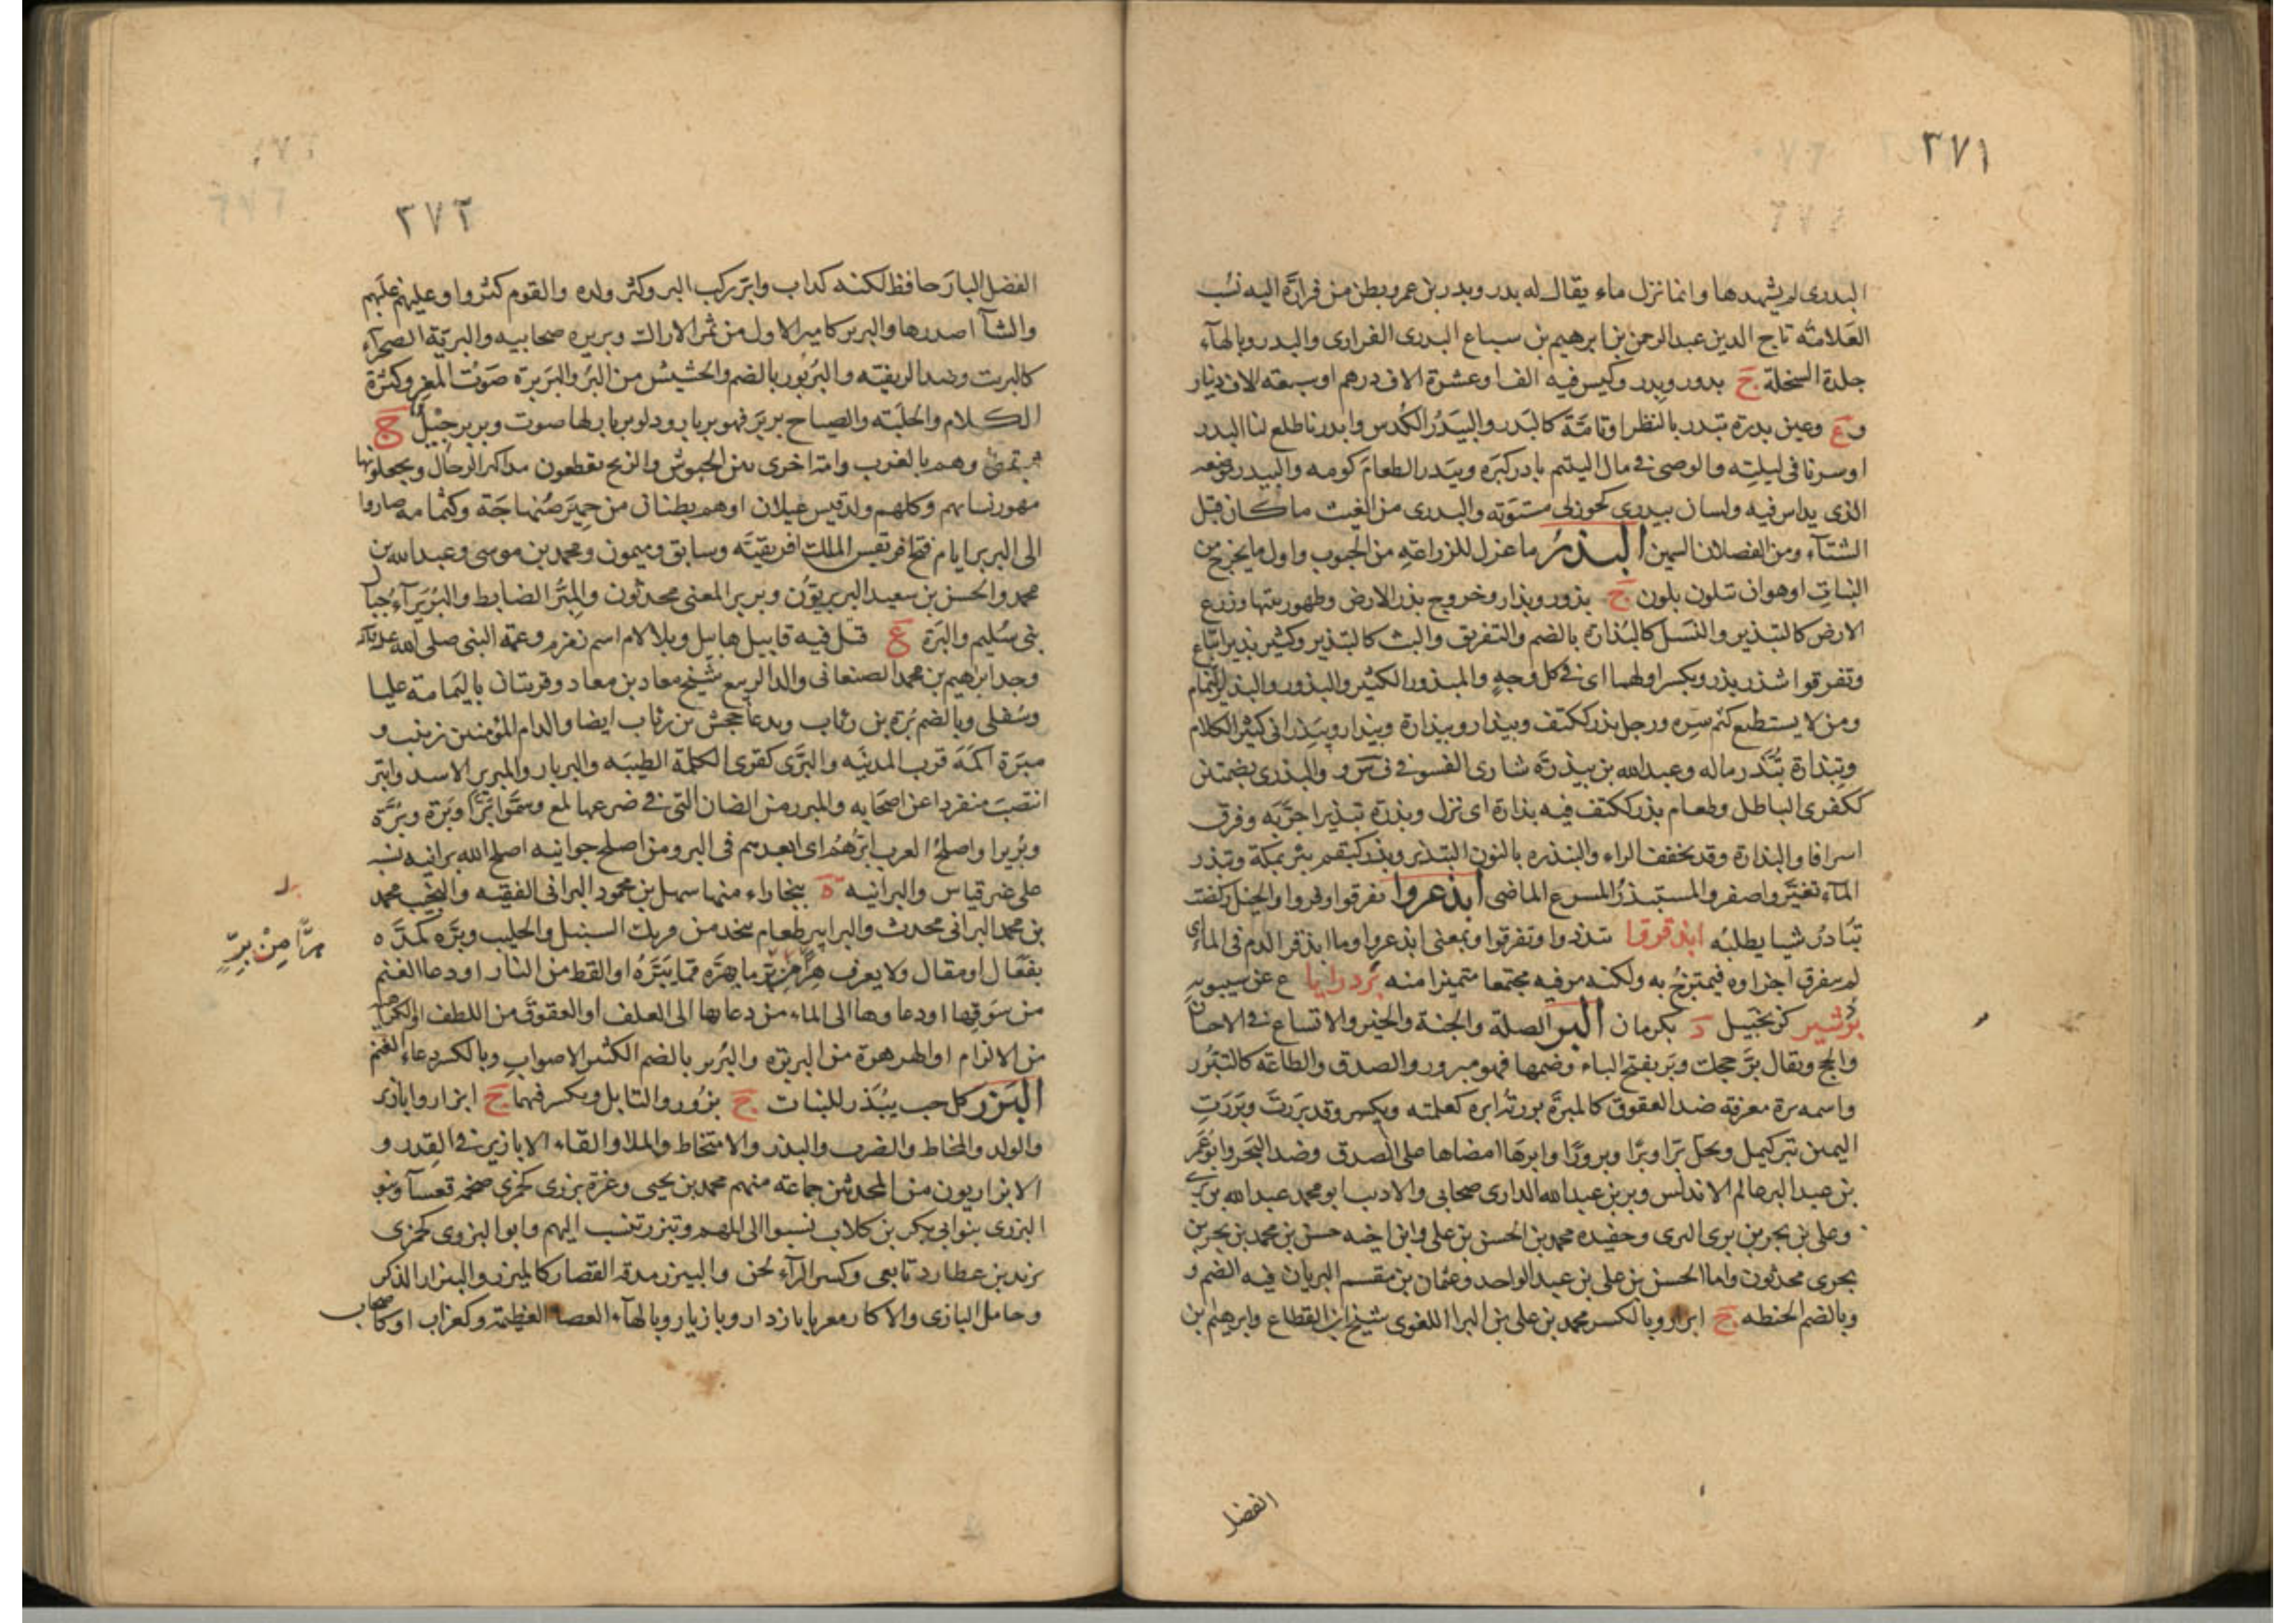 ٣٧١
البدرى لم يشهدها وانما نزل ماء يقال له بدر وبدر بن عمرو بطن من فزارة اليه نسب
العلامة تاج الدين عبد الرحمن بن ابرهيم بن سباع البدرى الفزارى والبدر وبالهاء
جلدة السخلة ج بدور وبدر وكيس فيه الف او عشرة الاف درهم او سبعة الاف دينار
وع وعين بدرة تبدر بالنظر او تامّة كالبدر والبيدر الكدس وابدرنا طلع لنا البدر
او سرنا فى ليلته والوصى فى مال اليتيم بادر كبره وبيدر الطعام كومه والبيدر موضعه
الذى يداس فيه ولسان بيدرى كخوزلى مستوته والبدرى من الغيث ما كان قبل
الشتاء ومن الفصلان السمين البذر ما عزل للزراعة من الحبوب واول ما يخرج من
النبات او هو ان تتلون بلون ج بذور وبذار وخروج بذر الارض وظهور نبتها وزرع
الارض كالتبذير والنسل كالبذارة بالضم والتفريق والبث كالتبذير وكثير بذير اتباع
وتفرقوا شذر بذر ويكسر اولهما اى فى كل وجه والمبذور الكثير والبذور والبذير النمام
ومن لا يستطيع كتم سره ورجل بذر ككتف وبيذار وبيذارة وتبذار وبيذرانى كثير الكلام
وتبذارة يبذر ماله وعبد الله بن بيذرة شارى الفسو فى ف س و والبذرى بضمتين
ككفرى الباطل وطعام بذر ككتف فيه بذارة اى نزل وبذره تبذيرا خربه وفرقه
اسرافا والبذارة وقد يخفف الراء والنبذره بالنون التبذير وبذر كبقم بئر بمكة وتبذر
الماء تغير واصفر والمستبذر المسرع الماضى ابذعروا تفرقوا وفروا والخيل ركضت
تبادر شيا يطلبه ابذقروا تبددوا وتفرقوا وبمعنى ابذعروا وما ابذقر الدم فى الماء اى
لم يتفرق اجزاوه فيمتزج به ولكنه مر فيه مجتمعا متميزا منه بردرايا ع عن سيبويه
بردشير كزنجبيل د بكرمان البر الصلة والجنة والخير والاتساع فى الاحسان
والحج ويقال بر حجك وبر بفتح الباء وضمها فهو مبرور والصدق والطاعة كالتبرر
واسمه برة معرفة ضد العقوق كالمبرة بررته ابره كعلمته ويكسر وقد بررت وبررت
اليمين تبر كيمل ويحل برا وبرا وبرورا وابرها امضاها على الصدق وضد البحر وابو عمر
بن عبد البر عالم الاندلس وبر بن عبد الله الدارى صحابى والاديب ابو محمد عبد الله بن برى
وعلى بن بحر بن برى البرى وحفيده محمد بن الحسن بن على وابن اخيه حسن بن محمد بن بحر بن
بحرى محدثون واما الحسن بن على بن عبد الواحد وعثمان بن مقسم البريان فيه الضم و
وبالضم الحنطه ج ابرار وبالكسر محمد بن على بن البر اللغوى شيخ ابن القطاع وابرهيم بن
الفضل
٣٧٢
الفضل البار حافظ لكنه كذاب وابر ركب البر وكثر ولده والقوم كثروا وعليهم غلبهم
والشاء اصدرها والبرير كامير الاول من ثمر الاراك وبريره صحابيه والبرية الصحراء
كالبريت وضد الريفيه والبربور بالضم والجشيش من البر والبربرة صوت المعز وكثرة
الكلام والجلبة والصياح بربر فهو بربار ودلو بربار لها صوت وبربر جيل ج
وهم بالغرب وامة اخرى بين الحبوش والزنج يقطعون مذاكير الرجال ويجعلونها
مهور نسائهم وكلهم ولد قيس عيلان او هم بطنان من حمير صنهاجة وكتامه صاروا
الى البربر ايام فتح افريقس الملك افريقية وسابق وميمون ومحمد بن موسى وعبد الله بن
محمد والحسن بن سعيد البربريون وبربر المغنى محدثون والمبر الضابط والبريراء جبال
بنى سليم والبرة ع قتل فيه قابيل هابيل وبلا لام اسم زمزم وعمة النبى صلى الله عليه
وجد ابراهيم بن محمد الصنعانى والد الربيع شيخ معاد بن معاد وقريتان باليمامة عليا
وسفلى وبالضم برة بن رئاب ويدعا جحش بن رئاب ايضا والد ام المؤمنين زينب و
مبرة اكمة قرب المدينه والبرى كقرى الكلمة الطيبه والبربار والمبرير الاسد وابتر
انتصب منفردا عن اصحابه والمبرر من الضان التى فى ضرعها لمع وسموا برا وبرة وبرة
وبريرا واصلح العرب ابرهم اى ابعدهم فى البر ومن اصلح جوانيه اصلح الله برانيه نسبه
على غير قياس والبرانيه ه ببخاراء منها سهل بن محمود البرانى الفقيه والنجيب محمد
بن محمد البرانى محدث والبرابير طعام يتخذ من فريك السنبل والحليب وبره كمده
بفعال او مقال ولا يعرف هرا من بر ما يهره مما يبره او القط من الفار او دعا الغنم
من سوقها او دعاوها الى الماء من دعايها الى العلف او العقوق من اللطف او الكراهيه
من الاكرام او الهرهرة من البربره والبربر بالضم الكثير الاصوات وبالكسر دعاء الغنم
البزر كل حب يبذر للنبات ج بزور والتابل ويكسر فيهما ج ابزار وابازير
والولد والمخاط والضرب والبذر والامتخاط والملا والقاء الابازير فى القدر و
الابزاريون من المحدثين جماعة منهم محمد بن يحيى وعزة بزرى كجمزى ضخمه قعساء وبنو
البزرى بنو ابى بكر بن كلاب نسبوا الى امهم وتبزر تنسب اليهم وابو البزرى كجمزى
يزيد بن عطارد تابعى وكسر الراء لحن والبيزر مدقة القصار كالمبزر والبيزار الذكر
وحامل البازى والاكار معربا بازدار وبازيار وبالهاء العصا العظيمة وكغراب او كتاب
هرا من بر